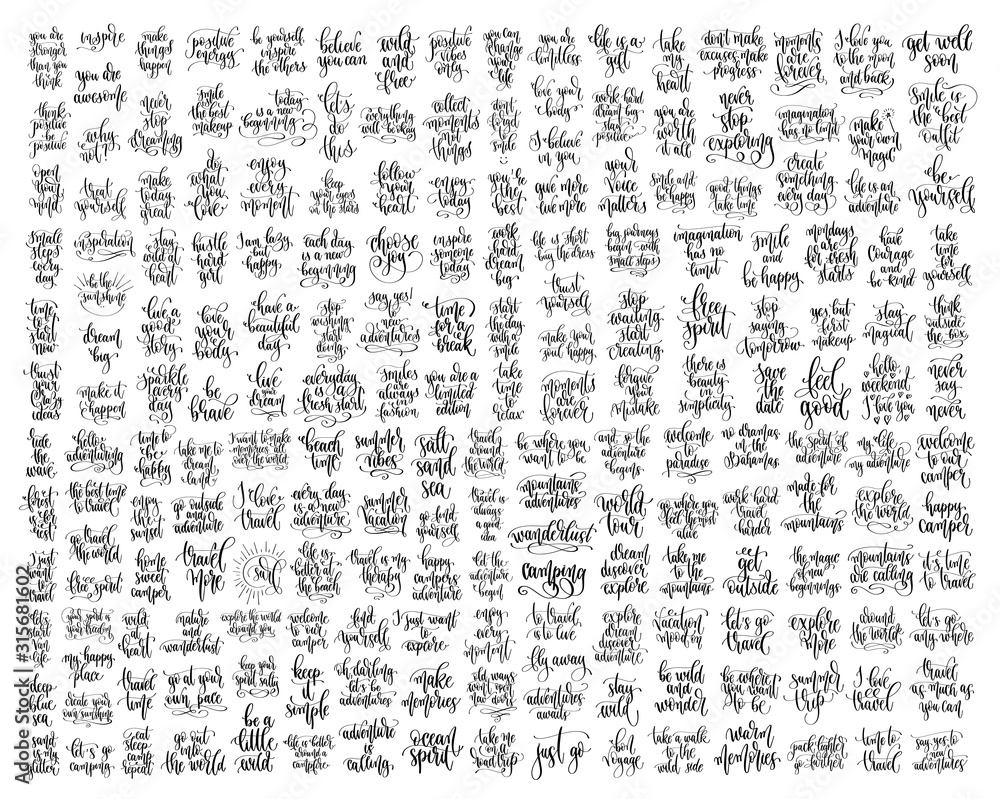 you are
stronger
than you
think
inspire
make
things
happen
positive
energy
be yourself
inspire
the others
believe
you can
wild
and
free
positive
vibes
only
you can
change
your
life
you are
limitless
life is a
gift
take
my
heart
don't make
excuses make
progress
moments
are
forever
I love you
to the moon
and back
get well
soon
think
positive
be
positive
you are
awesome
why
not?
never
stop
dreaming
smile
the best
makeup
today
is a new
beginning
let's
do
this
everything
will be okay
collect
moments
not
things
don't
forget
to
smile
:)
love your
body
I believe
in you
work hard
dream big
stay
positive
you are
worth
it all
never
stop
exploring
imagination
has no limit
make
your own
magic
smile is
the best
outfit
open
your
mind
treat
yourself
make
today
great
do
what
you
love
enjoy
every
moment
keep
your eyes
on the stars
follow
your
heart
enjoy
today
you're
the
best
give more
live more
your
voice
matters
smile and
be happy
good things
take time
create
something
every day
life is an
adventure
be
yourself
small
steps
every
day
inspiration
be the
sunshine
stay
wild at
heart
hustle
hard
girl
I am lazy,
but
happy
each day
is a new
beginning
choose
joy
inspire
someone
today
work
hard
dream
big
life is short
buy the dress
big journeys
begin with
small steps
imagination
has no
limit
smile
and
be happy
mondays
are
for fresh
starts
have
courage
and
be kind
take
time
for
yourself
time
to
start
now
dream
big
live a
good
story
love
your
body
have a
beautiful
day
stop
wishing
start
doing
say, yes!
to
new
adventures
time
for a
break
start
the day
with a
smile
trust
yourself
make your
soul happy
stop
waiting
start
creating
free
spirit
stop
saying
tomorrow
yes, but
first
makeup
stay
magical
think
outside
the box
trust
your
crazy
ideas
make it
happen
sparkle
every
day
be
brave
live
your
dream
everyday
is a
fresh start
smiles
are
always
in
fashion
you are a
limited
edition
take
time
to
relax
moments
are
forever
forgive
your
mistake
there is
beauty
in
simplicity
save
the
date
feel
good
hello
weekend
I love you
never
say
never
ride
the
wave
hello
adventuring
time to
be
happy
take me to
dream
land
I want to make
memories all
over the world
beach
time
summer
vibes
salt
sand
sea
travel
around
the world
be where you
want to be
and, so the
adventure
begins
welcome
to
paradise
no dramas
in the
Bahamas
the spirit of
adventure
my life
my adventure
welcome
to our
camper
forest
is the
best
rest
the best time
to travel
enjoy
the
sunset
go outside
and
adventure
I love
travel
every day
is a new
adventure
summer
vacation
go find
yourself
travel is
always
a good
idea
mountains
adventures
wanderlust
world
tour
go where you
feel the most
alive
work hard
travel
harder
made for
the
mountains
explore
the world
happy
camper
I just
want
to
travel
go travel
the world
free spirit
home
sweet
camper
travel
more
surf
life is
better
at
the beach
travel is my
therapy
happy
campers
adventure
let the
adventure
begin
camping
dream
discover
explore
take me
to the
mountains
get
outside
the magic
of new
beginnings
mountains
are calling
it's time
to
travel
let's
start
van
life
your spirit is
your freedom
wild
at
heart
nature
and
wanderlust
explore the world
around you
welcome
to our
camper
find
yourself
I just want
to
explore
enjoy
every
moment
to travel
is to live
explore
dream
discover
adventure
vacation
mood on
let's go
travel
explore
more
around
the world
let's go
any where
deep
blue
sea
my happy
place
create your
own sunshine
travel
time
go at your
own pace
keep your
spirit salty
keep
it
simple
oh darling
let's be
adventures
make
memories
old ways
won't open
new doors
fly away
adventures
awaits
stay
wild
be wild
and
wonder
be where
you want
to be
summer
trip
I love
travel
travel
as much as
you can
sand is
my
glitter
let's go
camping
eat
sleep
camp
repeat
go out
into
the world
be a
little
wild
life is better
around a
campfire
adventure
is
calling
ocean
spirit
take me
on a
road trip
just go
bon
voyage
take a walk
to the
wild side
warm
memories
pack lighter
go further
time to
travel
say yes to
adventures
Adobe Stock | #315681602